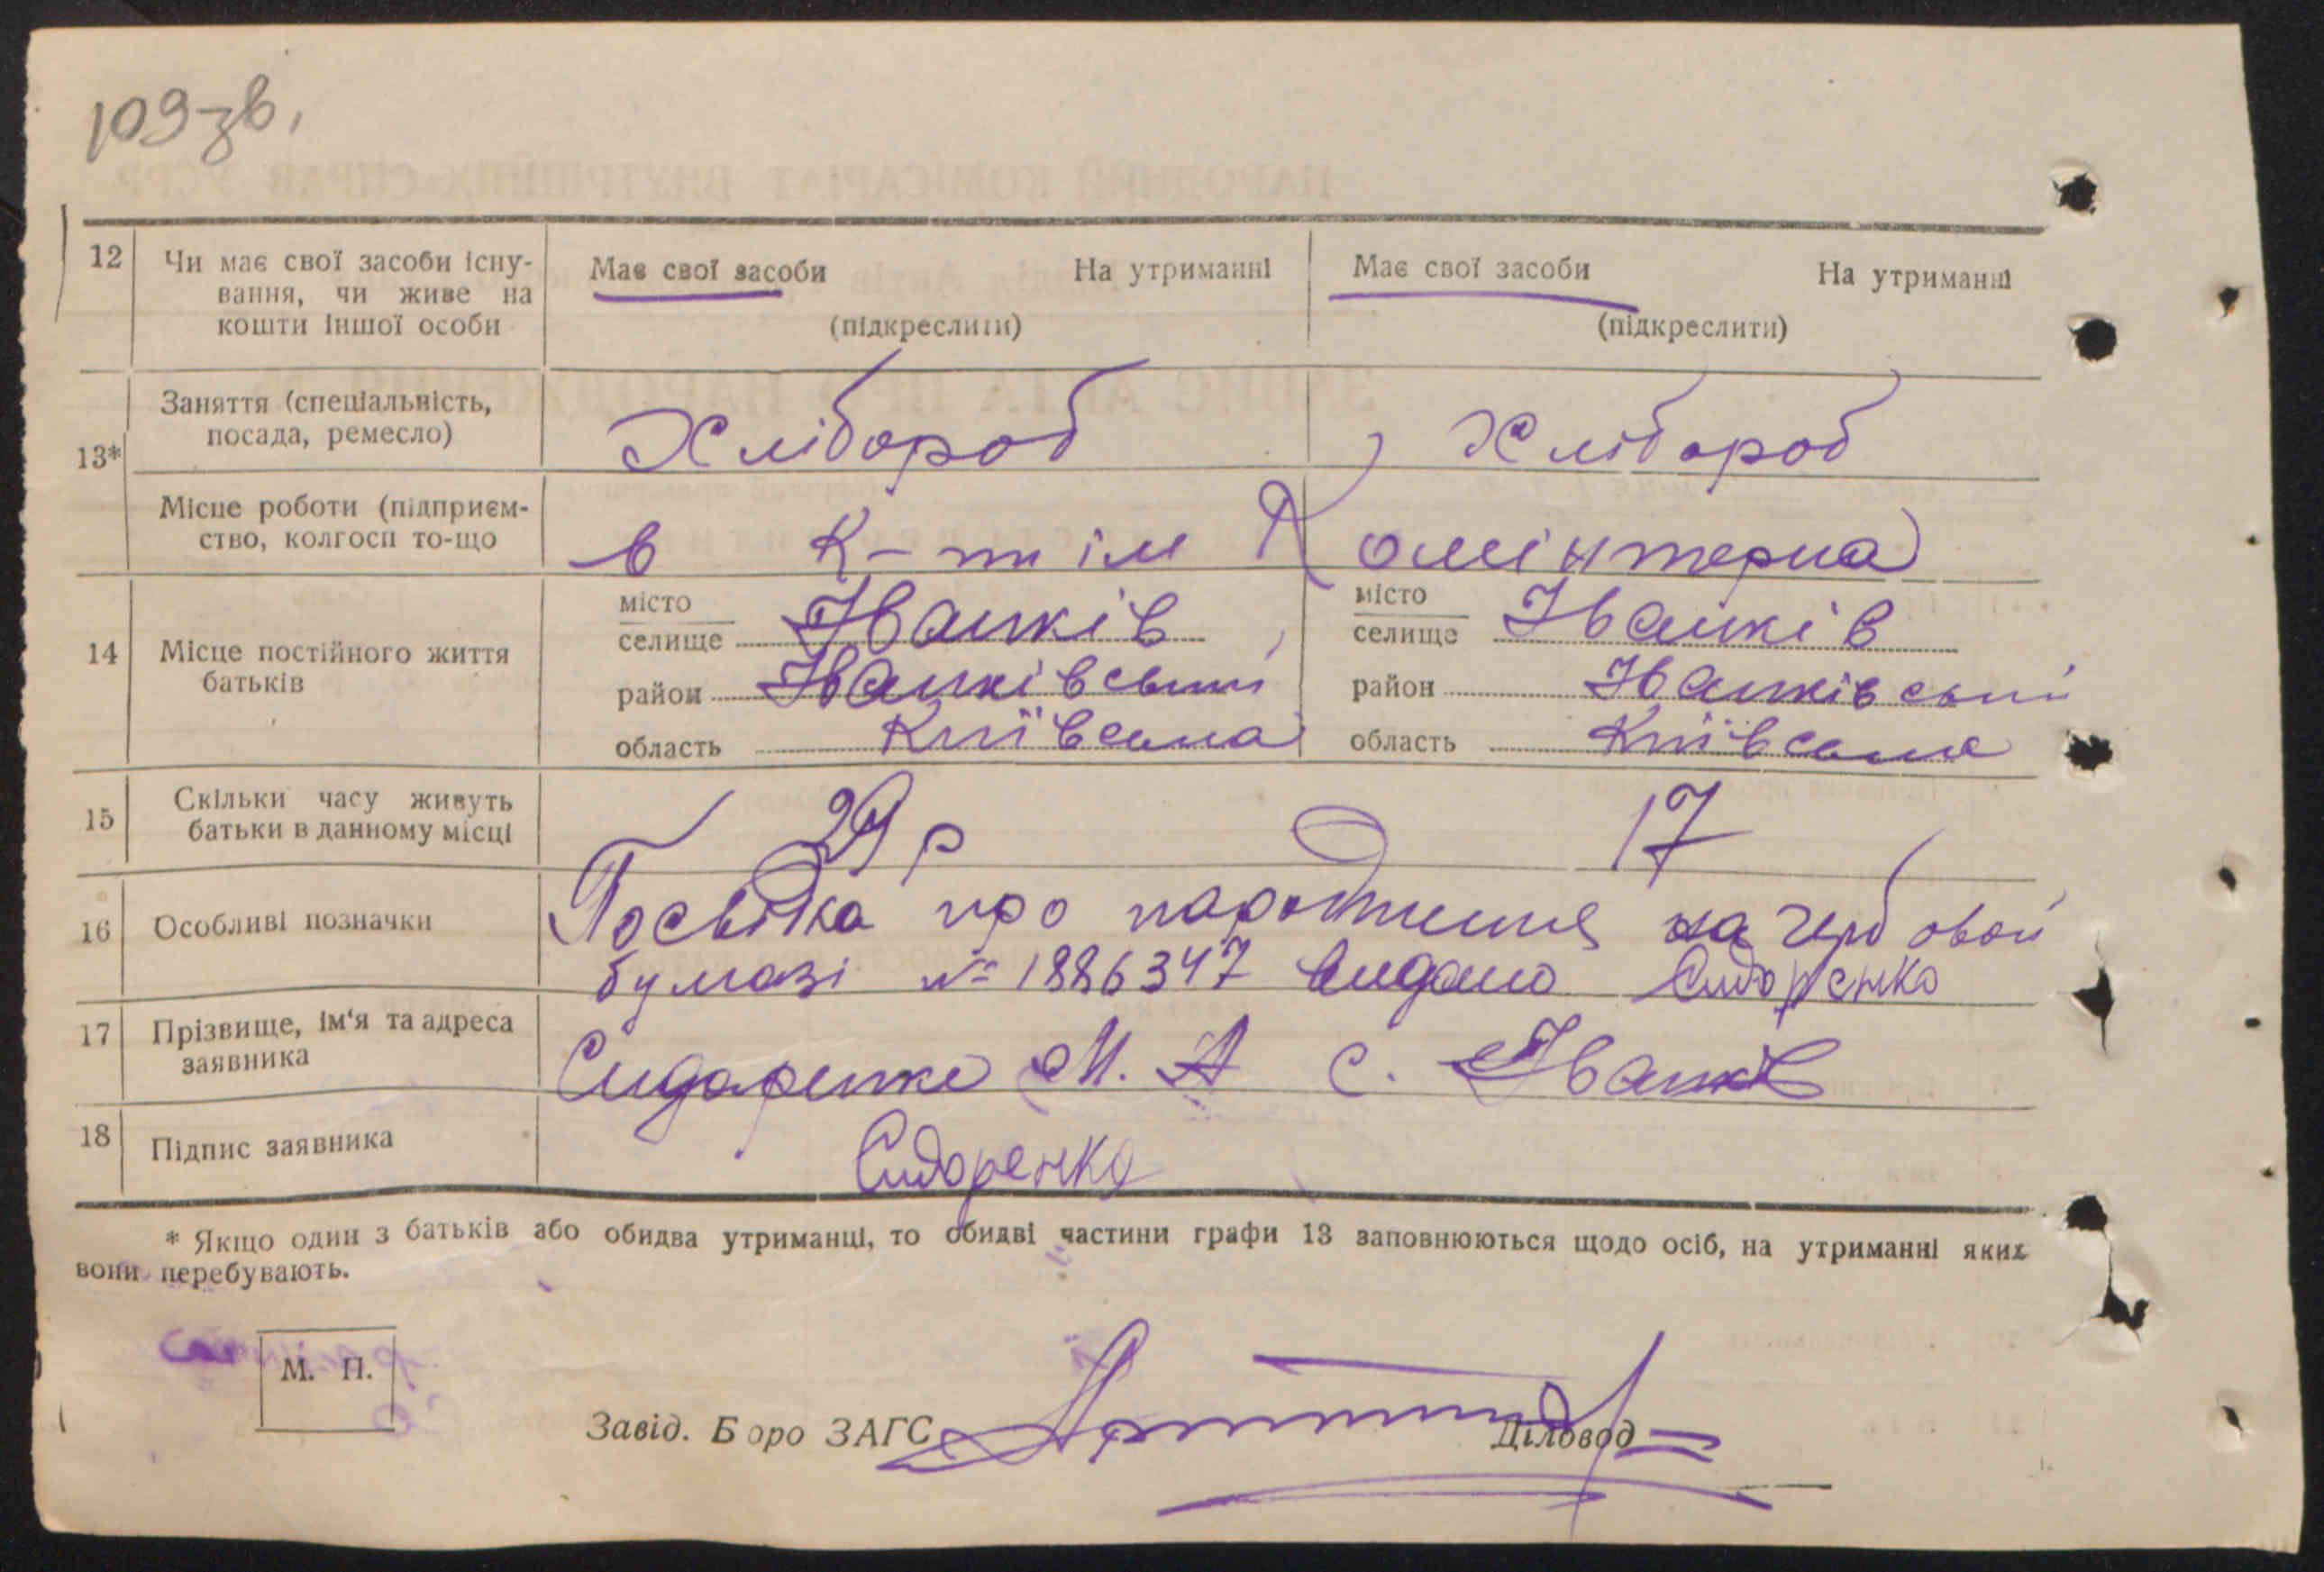 109-зв.
12 Чи має свої засоби існу-
вання, чи живе на
кошти іншої особи
Має свої засоби На утриманні
(підкреслити)
Має свої засоби На утриманні
(підкреслити)
13*
Заняття (спеціальність,
посада, ремесло)
Хлібороб
Хлібороб
Місце роботи (підприєм-
ство, колгосп то-що
в К-пі ім Комінтерна
14 Місце постійного життя
батьків
місто
селище Іванків
район Іванківський
область Київська
місто
селище Іванків
район Іванківський
область Київська
15 Скільки часу живуть
батьки в данному місці
29 р
17
16 Особливі позначки
Посвідка про народження на гербовой
бумазі № 1886347 видано Сидоренко
17 Прізвище, ім'я та адреса
заявника
Сидоренко М. А с. Іванків
18 Підпис заявника
Сидоренко
* Якщо один з батьків або обидва утриманці, то обидві частини графи 13 заповнюються щодо осіб, на утриманні яких
вони перебувають.
М. П.
Завід. Бюро ЗАГС
Діловод